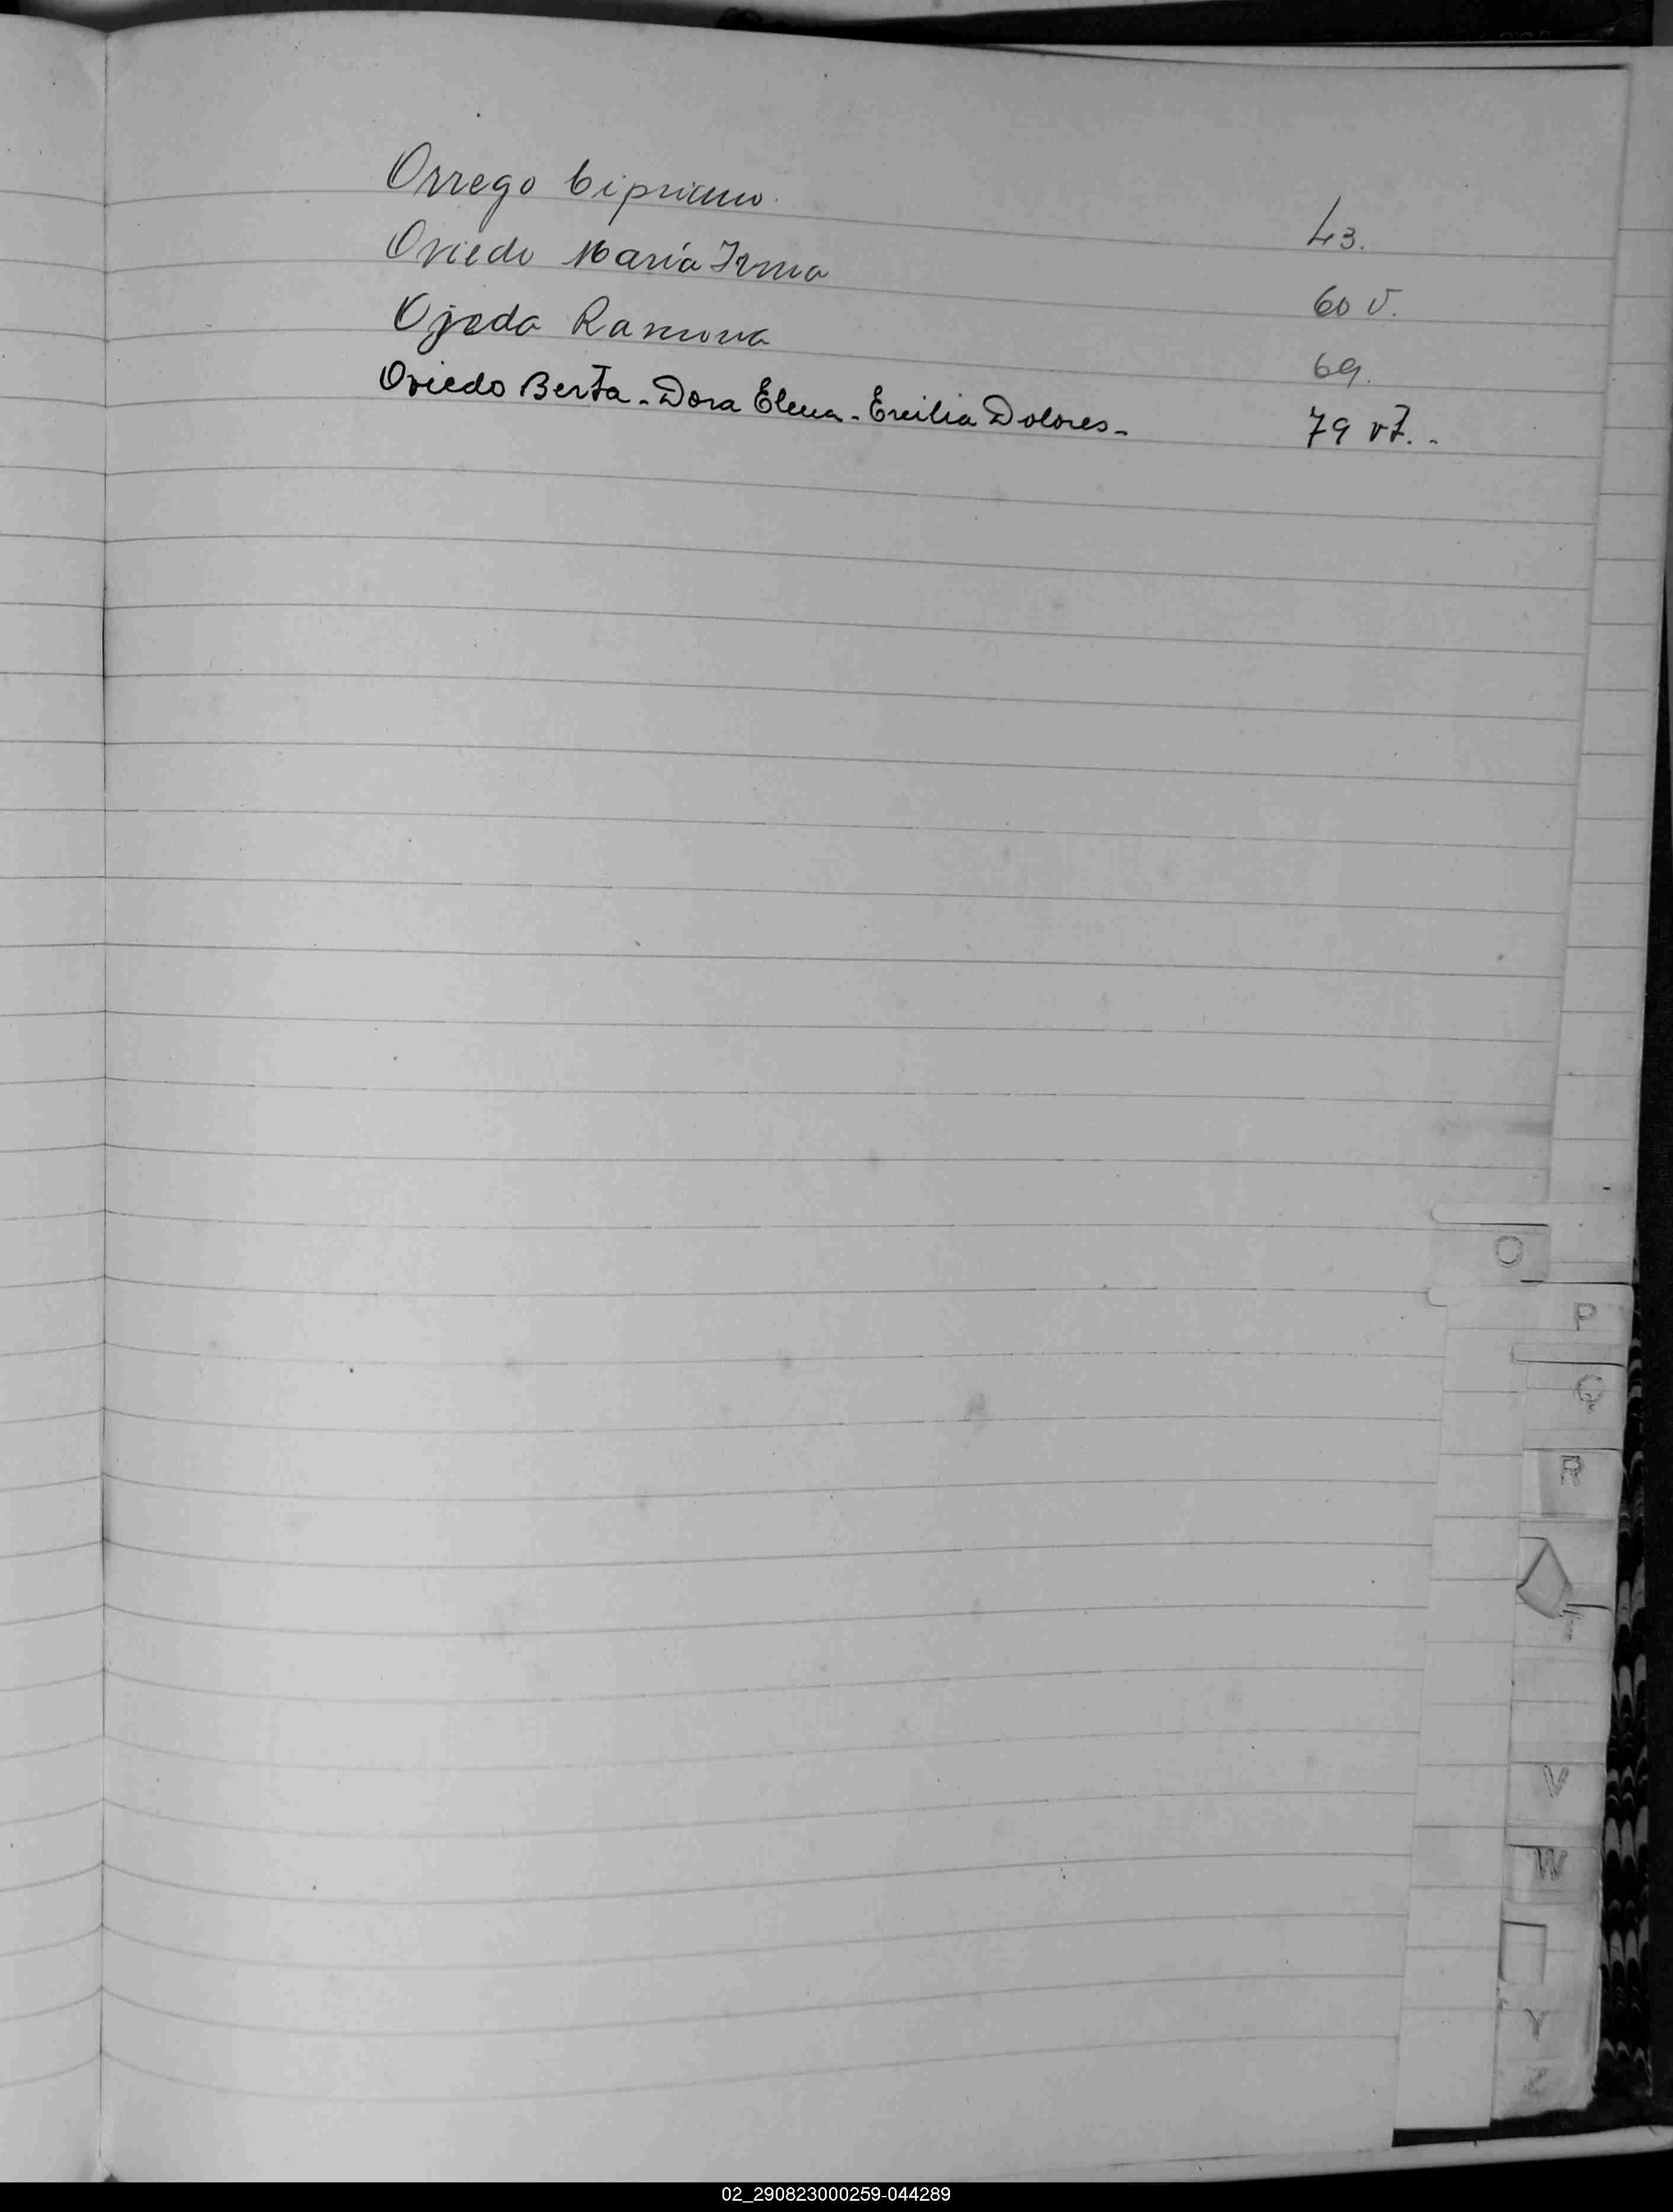 Orrego Cipriano. 43.
Oviedo María Irma 60 v.
Ojeda Ramona 69.
Oviedo Berta - Dora Elena - Ercilia Dolores - 79 vt. -
O
P
Q
R
V
W
Y
Z
02_290823000259-044289